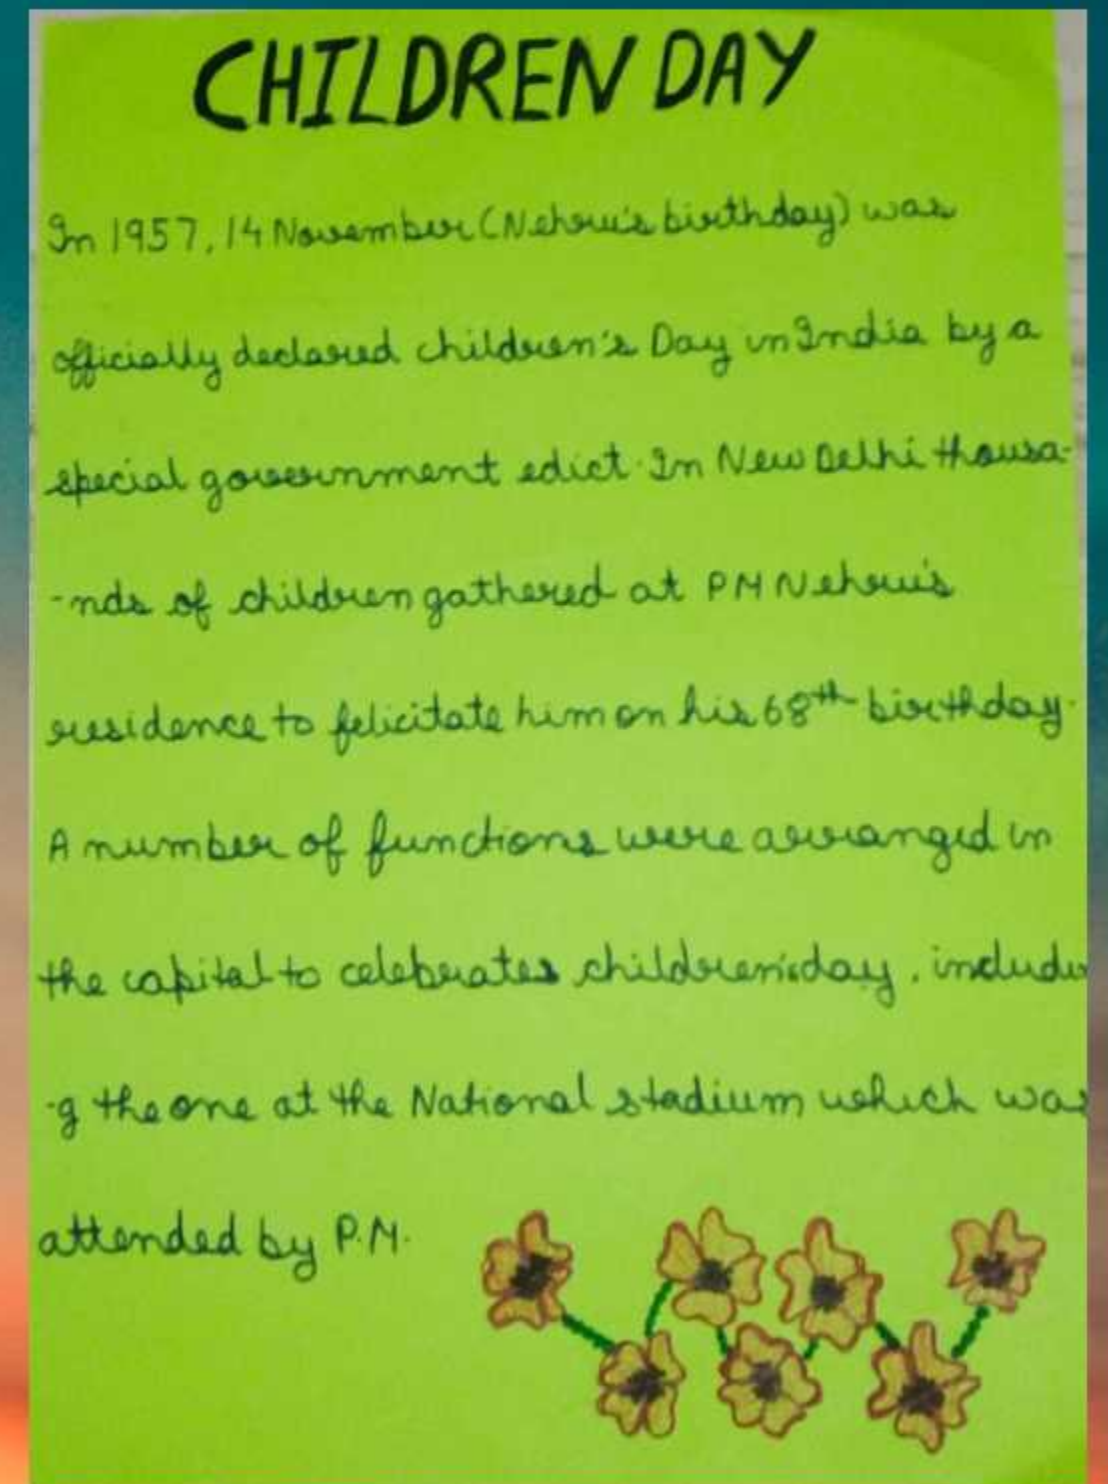 CHILDREN DAY
In 1957, 14 November (Nehru's birthday) was
officially declared children's Day in India by a
special government edict. In New Delhi thousa-
-nds of children gathered at PM Nehru's
residence to felicitate him on his 68th birthday.
A number of functions were arranged in
the capital to celebrates children's day, includin
-g the one at the National stadium which was
attended by P.M.